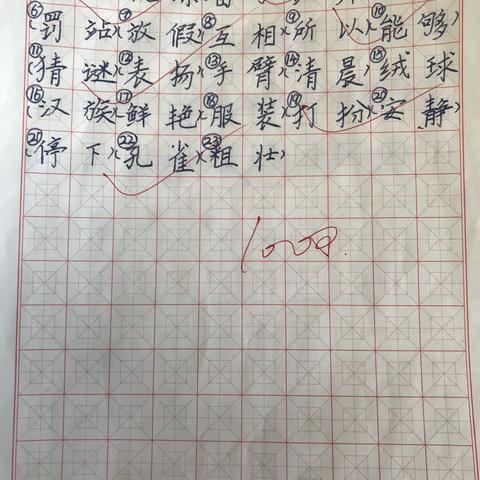 ⑥罚站⑦放假⑧互相⑨所以⑩能够
⑪猜谜⑫表扬⑬手臂⑭清晨⑮绒球
⑯汉族⑰鲜艳⑱服装⑲打扮⑳安静
㉑停下㉒孔雀㉓粗壮
100